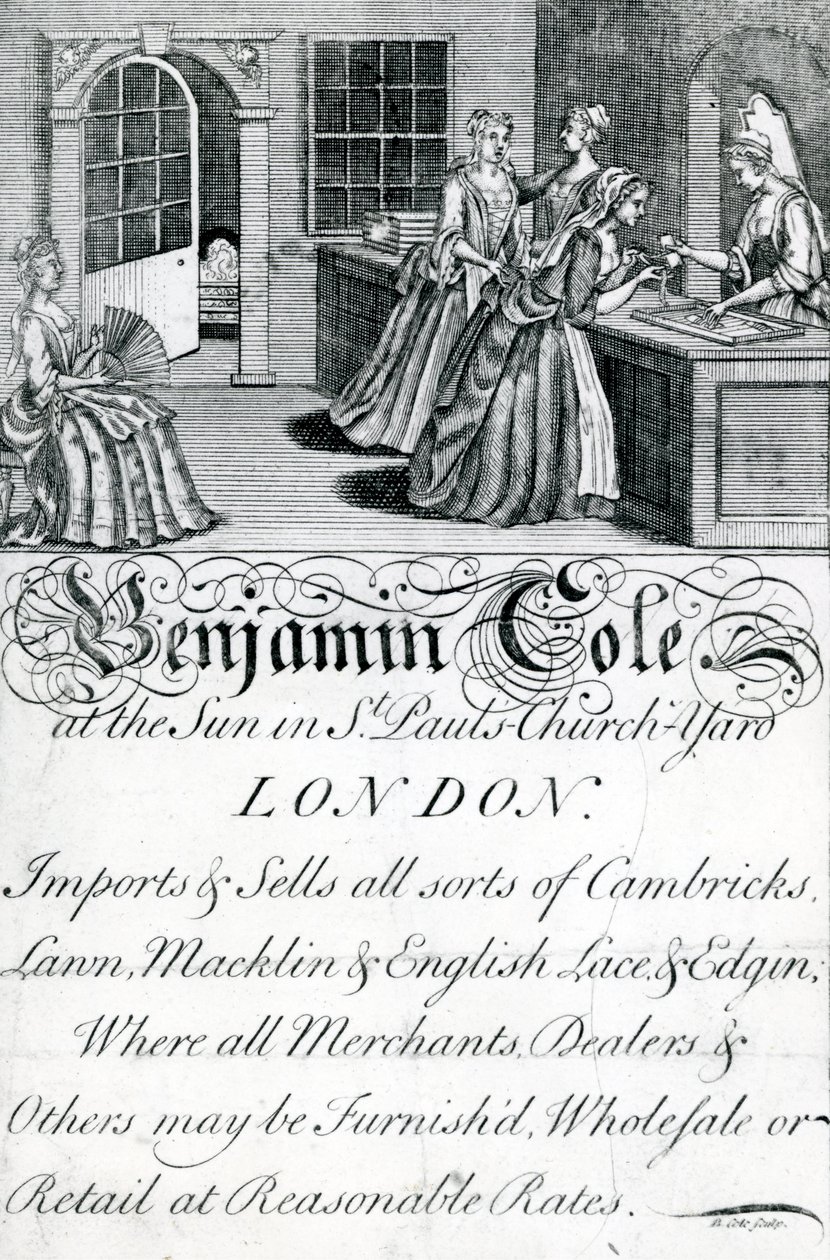 Benjamin Cole
at the Sun in St. Paul's-Church-Yard
LONDON.
Imports & Sells all sorts of Cambricks,
Lawn, Macklin & English Lace, & Edgin;
Where all Merchants, Dealers &
Others may be Furnish'd, Wholeſale or
Retail at Reasonable Rates.
B. Cole ſculp.